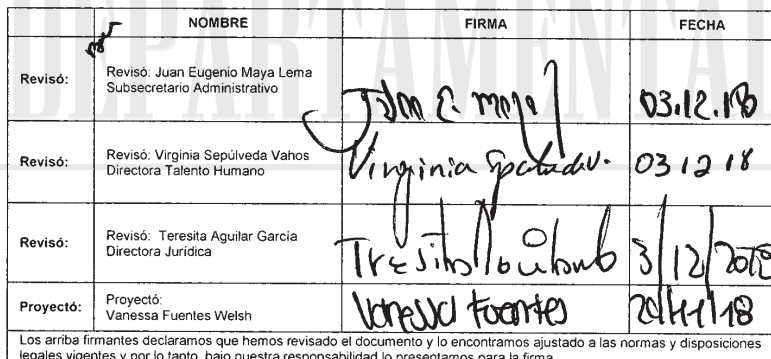 DEPARTAMENTAL
NOMBRE FIRMA FECHA
Revisó: Revisó: Juan Eugenio Maya Lema
Subsecretario Administrativo
Juan E. maya 03.12.18
Revisó: Revisó: Virginia Sepúlveda Vahos
Directora Talento Humano
Virginia 03 12 18
Revisó: Revisó: Teresita Aguilar García
Directora Jurídica
3/12/2018
Proyectó: Proyectó:
Vanessa Fuentes Welsh
Vanessa Fuentes /11/18
Los arriba firmantes declaramos que hemos revisado el documento y lo encontramos ajustado a las normas y disposiciones
legales vigentes y por lo tanto, bajo nuestra responsabilidad lo presentamos para la firma.